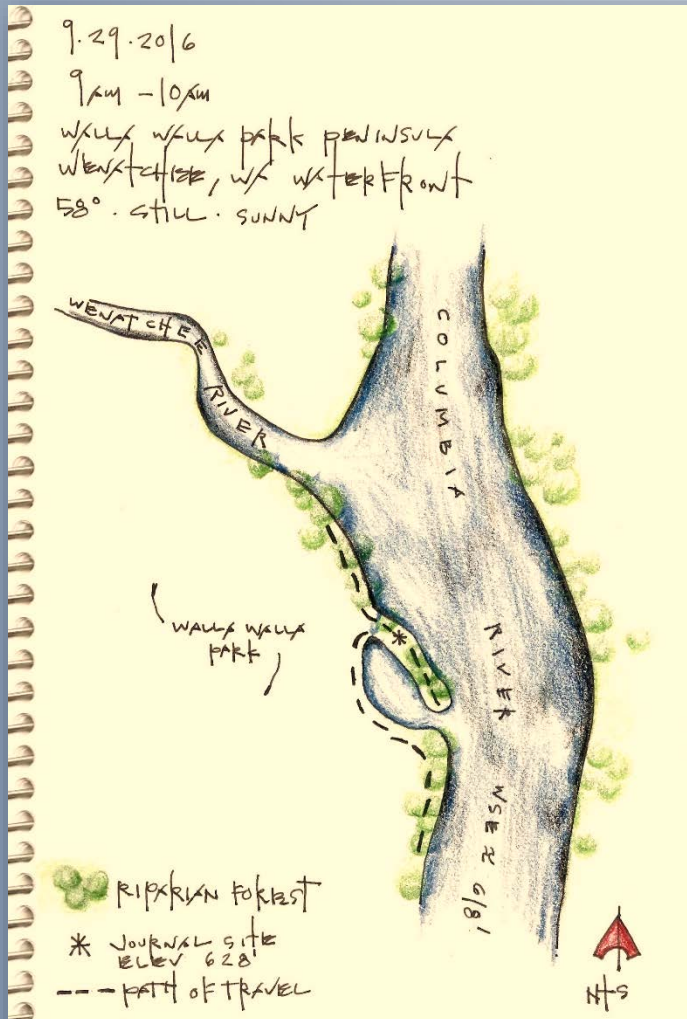 9.29.2016
9AM - 10AM
WALLA WALLA PARK PENINSULA
WENATCHEE, WA WATERFRONT
58° . STILL . SUNNY
WENATCHEE RIVER
COLUMBIA RIVER WSEL 618'
WALLA WALLA
PARK
RIPARIAN FOREST
* JOURNAL SITE
ELEV 628'
--- PATH OF TRAVEL
NTS